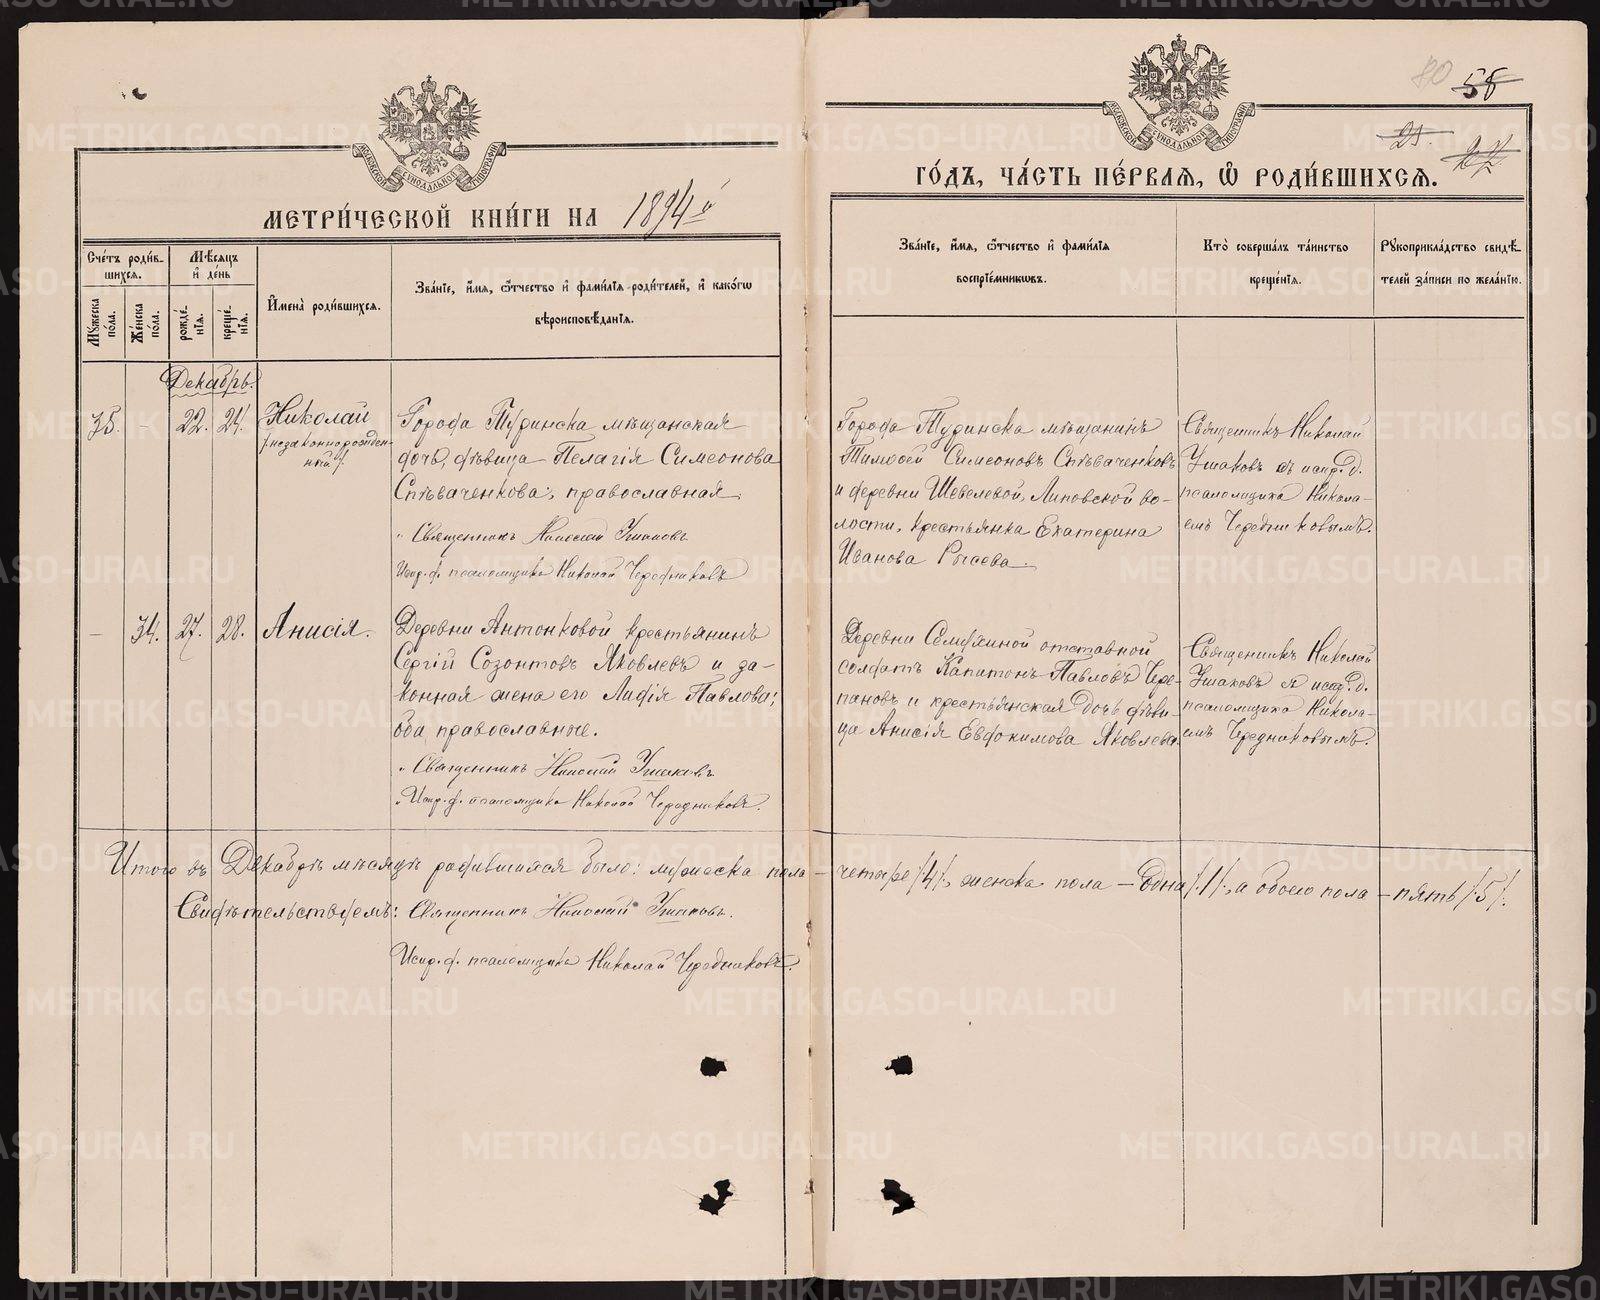 МЕТРИ́ЧЕСКОЙ КНИ́ГИ НА 1894й
ГО́ДЪ, ЧА́СТЬ ПЕ́РВАѦ, Ѿ РОДИ́ВШИХСѦ.
80 58
25. 27
Сче́тъ роди́в-
шихся.
Мꙋ́жеска по́ла.
Же́нска по́ла.
Мѣ́сяцъ
и́ де́нь
рожде́-
нїя.
креще́-
нїя.
И́мена̀ роди́вшихся.
Зва́нїе, и́мя, ѻ҆́тчество и҆ фами́лїя роди́телей, и҆ како́гѡ
вѣроисповѣ́данїя.
Зва́нїе, и́мя, ѻ҆́тчество и҆ фами́лїя
воспрїе́мниковъ.
Кто̀ соверша́лъ та́инство
креще́нїя.
Рꙋкоприкла́дство свидѣ́-
телей за́писи по жела́нїю.
Декабрь.
35. - 22. 24. Николай
/незаконнорожден-
ный/
Города Туринска мѣщанская
дочь, дѣвица Пелагія Симеонова
Спѣваченкова, православная.
Священникъ Николай Ушаковъ
Испр. д. псаломщика Николай Чередниковъ
Города Туринска мѣщанинъ
Тимоѳей Симеоновъ Спѣваченковъ
и деревни Шевелевой, Липовской во-
лости, крестьянка Екатерина
Иванова Рысева.
Священникъ Николай
Ушаковъ съ испр. д.
псаломщика Никола-
емъ Чередниковымъ.
- 34. 27. 28. Анисія.
Деревни Антонковой крестьянинъ
Сергій Созонтовъ Яковлевъ и за-
конная жена его Лидія Павлова;
оба православные.
Священникъ Николай Ушаковъ
Испр. д. псаломщика Николай Чередниковъ.
Деревни отставной
солдатъ Капитонъ Павловъ Чере-
пановъ и крестьянская дочь дѣви-
ца Анисія Евдокимова Яковлева.
Священникъ Николай
Ушаковъ съ испр. д.
псаломщика Никола-
емъ Чередниковымъ.
Итого въ Декабрѣ мѣсяцѣ родившихся было: мужеска пола - четыре /4/, женска пола - одна /1/, а обоего пола - пять /5/.
Свидѣтельствуемъ: Священникъ Николай Ушаковъ.
Испр. д. псаломщика Николай Чередниковъ.
METRIKI.GASO-URAL.RU